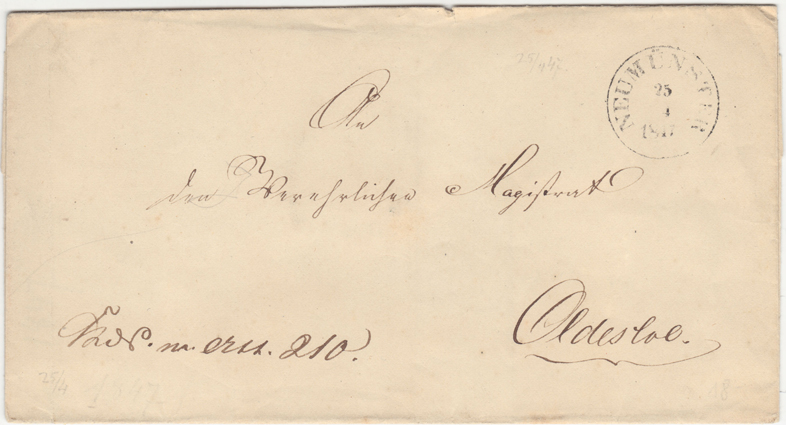 25/4 47
NEUMÜNSTER
25
4
1847
An
den Verehrlichen Magistrat
Oldesloe.
Kds. m. Act. 210.
25/4 1847
18